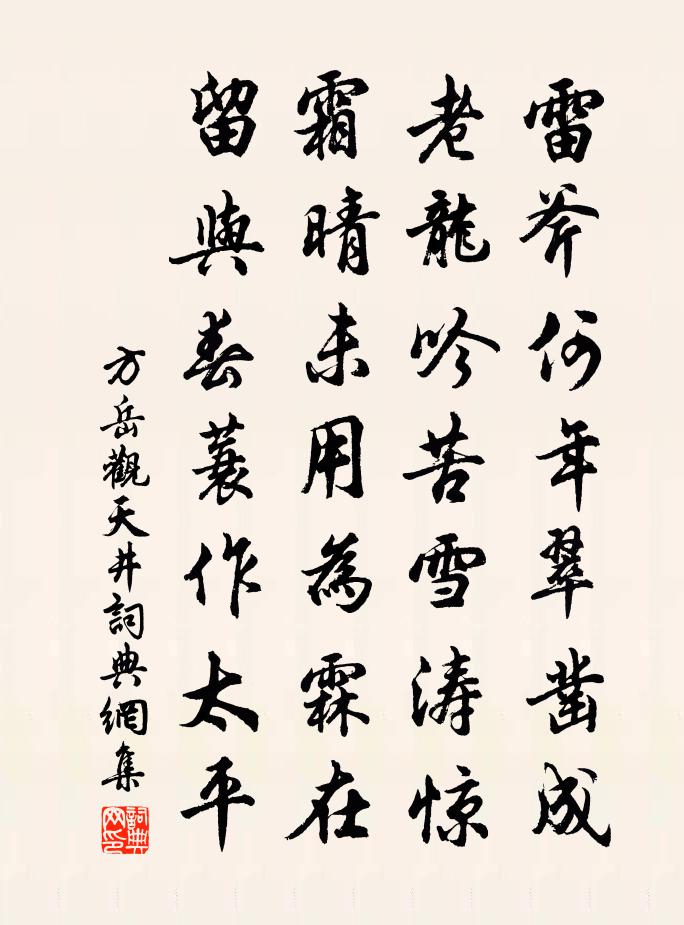 雷斧何年翠凿成
老龍吟苦雪涛惊
霜晴未用為霖在
留與春蓑作太平
方岳觀天井詞典網集
詞典网印